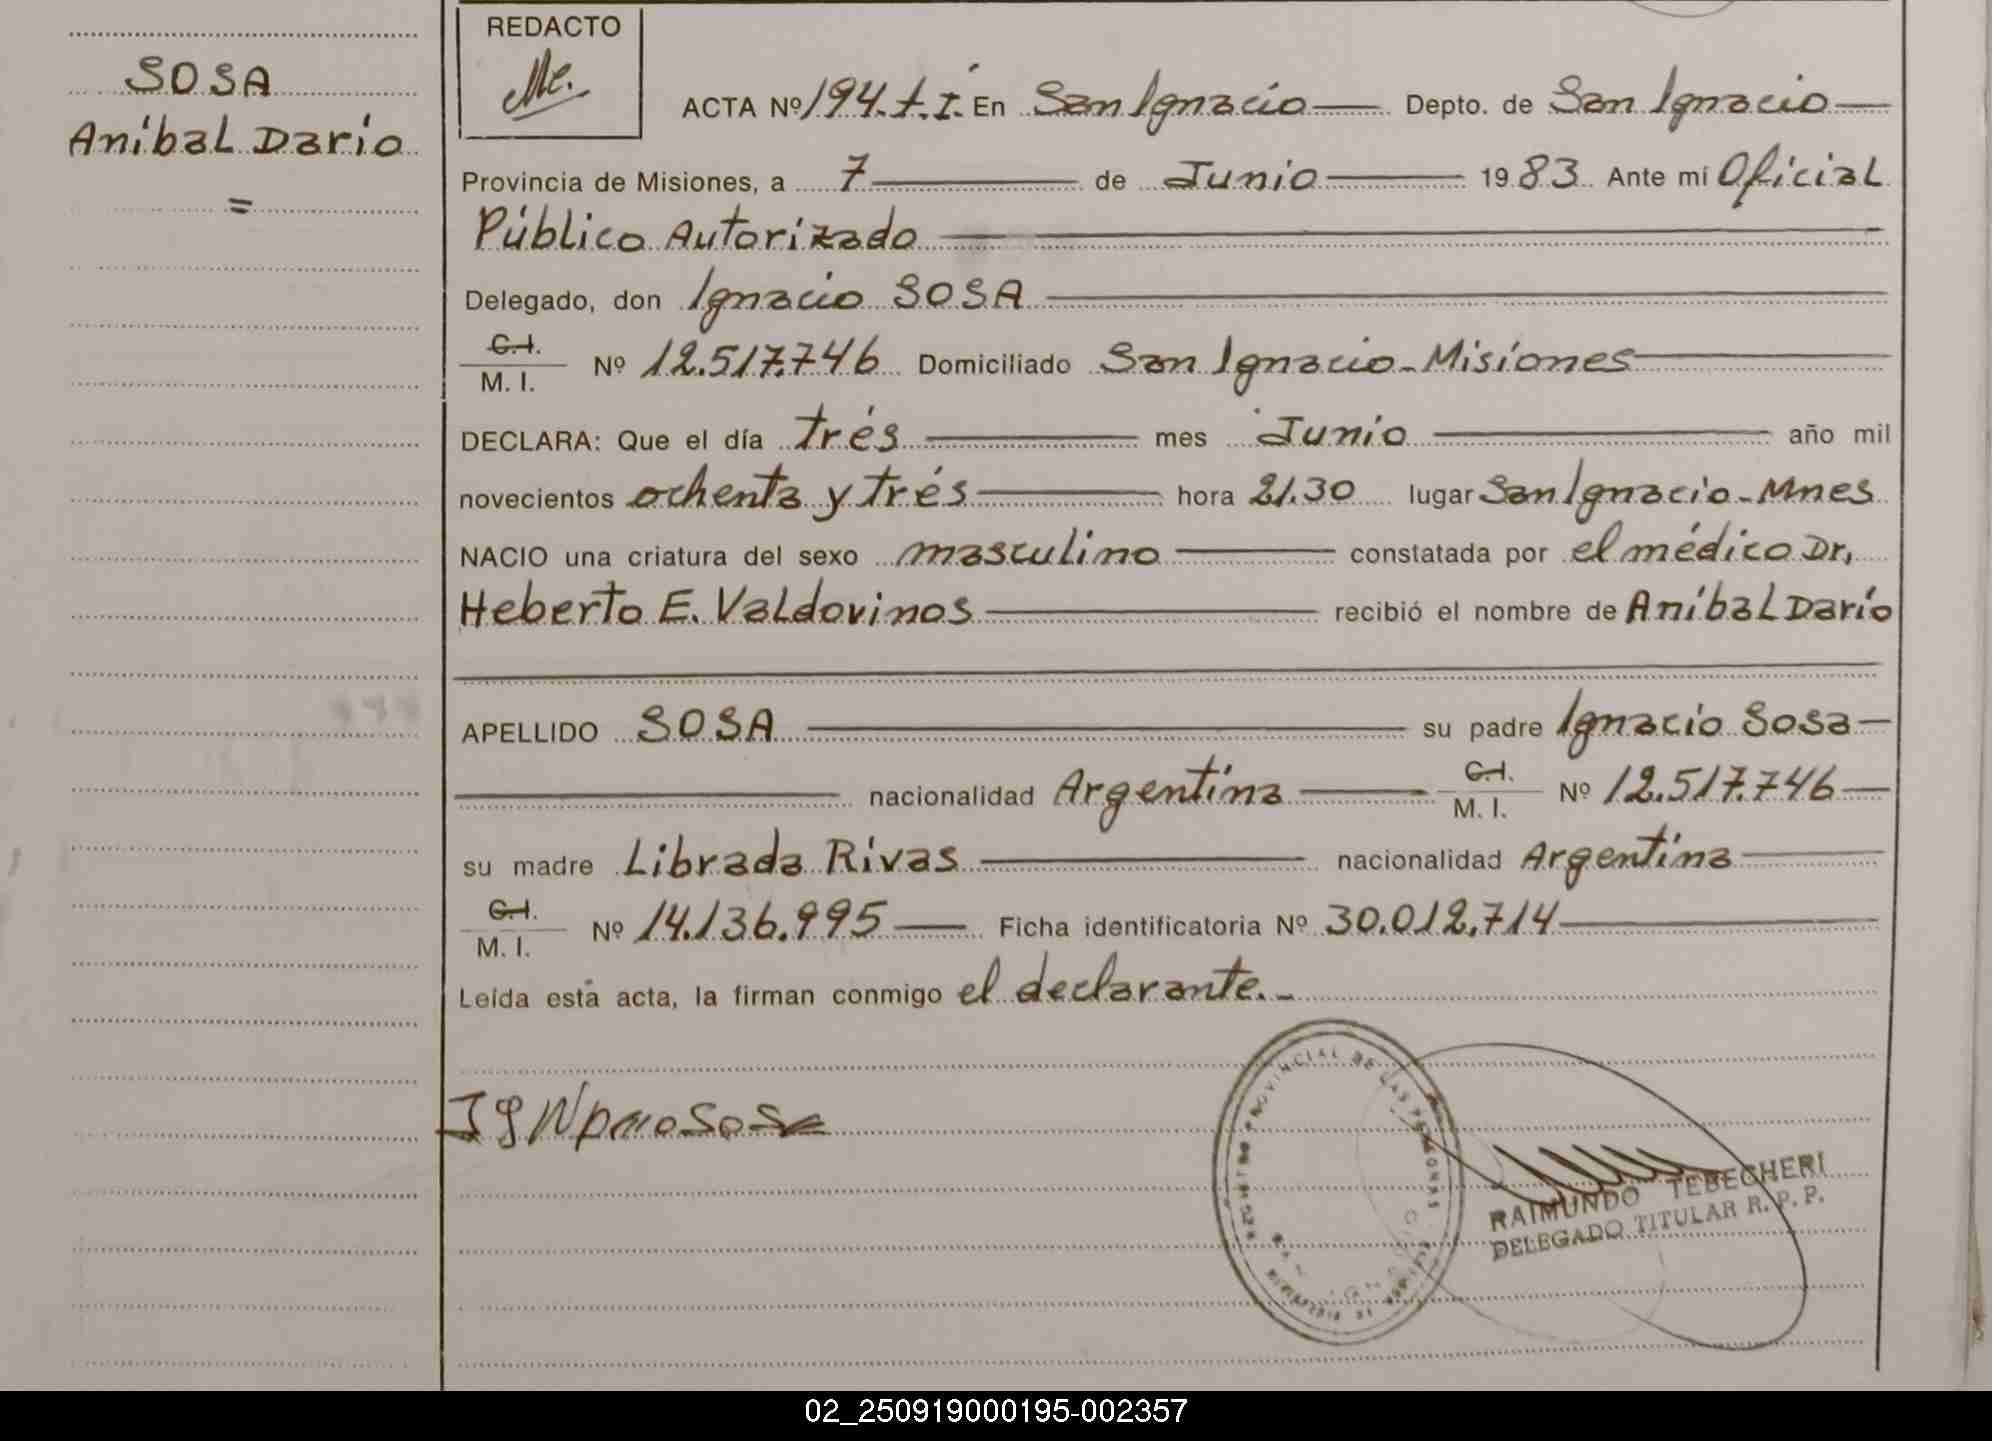 SOSA
Aníbal Darío
=
REDACTO
ACTA Nº 194. t. I. En San Ignacio Depto. de San Ignacio
Provincia de Misiones, a 7 de Junio 1983. Ante mí Oficial
Público Autorizado
Delegado, don Ignacio SOSA
C.I. / M. I. Nº 12.517.746 Domiciliado San Ignacio - Misiones
DECLARA: Que el día trés mes Junio año mil
novecientos ochenta y trés hora 21.30 lugar San Ignacio - Mnes
NACIO una criatura del sexo masculino constatada por el médico Dr,
Heberto E. Valdovinos recibió el nombre de Aníbal Darío
APELLIDO SOSA su padre Ignacio Sosa
nacionalidad Argentina C.I. / M. I. Nº 12.517.746
su madre Librada Rivas nacionalidad Argentina
C.I. / M. I. Nº 14.136.995 Ficha identificatoria Nº 30.012.714
Leída esta acta, la firman conmigo el declarante. -
REGISTRO PROVINCIAL DE LAS PERSONAS
RAIMUNDO TEBECHERI
DELEGADO TITULAR R. P. P.
02_250919000195-002357